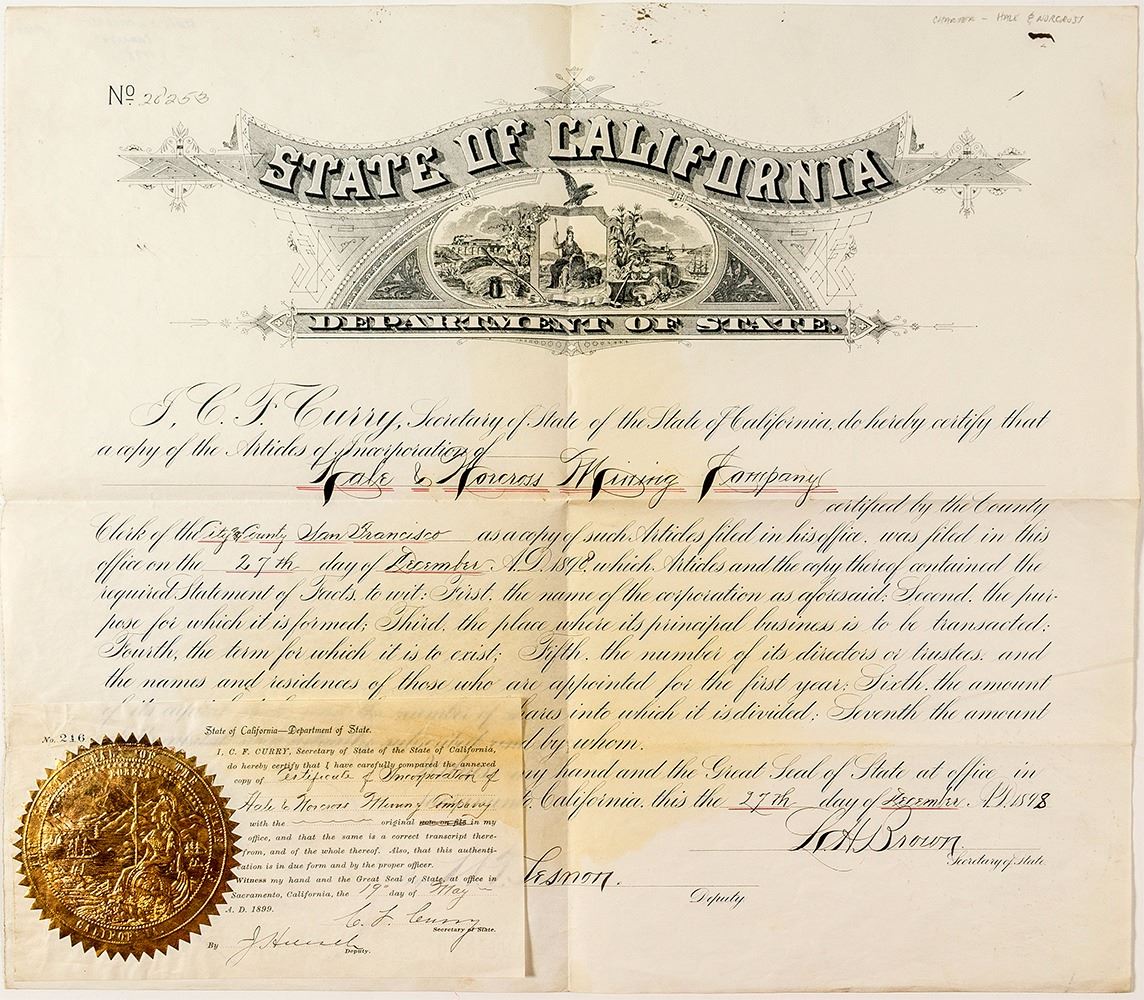 CHARTER - HALE & NORCROSS
No 26253
STATE OF CALIFORNIA
DEPARTMENT OF STATE.
I, C. F. Curry, Secretary of State of the State of California, do hereby certify that
a copy of the Articles of Incorporation of
Hale & Norcross Mining Company
certified by the County
Clerk of the City & County San Francisco as a copy of such Articles filed in his office, was filed in this
office on the 27th day of December A.D. 1898, which Articles and the copy thereof contained the
required Statement of Facts, to wit: First, the name of the corporation as aforesaid; Second, the pur-
pose for which it is formed; Third, the place where its principal business is to be transacted;
Fourth, the term for which it is to exist; Fifth, the number of its directors or trustees, and
the names and residences of those who are appointed for the first year; Sixth, the amount
ares into which it is divided; Seventh the amount
d by whom.
my hand and the Great Seal of State at office in
California, this the 27th day of December A.D. 1898
L H Brown
Secretary of State.
Lesnon.
Deputy
No. 246
State of California—Department of State.
I, C. F. CURRY, Secretary of State of the State of California,
do hereby certify that I have carefully compared the annexed
copy of Certificate of Incorporation of
Hale & Norcross Mining Company
with the original now on file in my
office, and that the same is a correct transcript there-
from, and of the whole thereof. Also, that this authenti-
ation is in due form and by the proper officer.
Witness my hand and the Great Seal of State, at office in
Sacramento, California, the 19th day of May
A. D. 1899.
C. F. Curry
Secretary of State.
By J Hoesch
Deputy.
CALIFORNIA